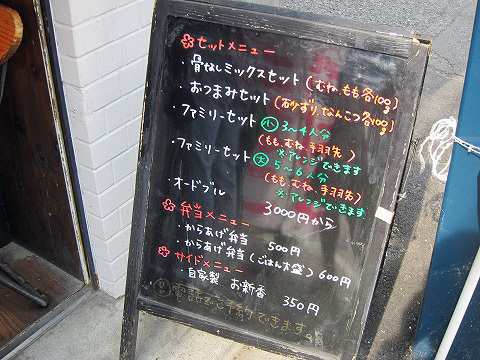 セットメニュー
・骨なしミックスセット（むね、もも各100g）
・おつまみセット（砂ずり、なんこつ各100g）
・ファミリーセット小 3～4人分
（もも、むね、手羽先）
※アレンジできます
・ファミリーセット大 5～6人分
（もも、むね、手羽先）
※アレンジできます
・オードブル 3000円から
弁当メニュー
・からあげ弁当 500円
・からあげ弁当（ごはん大盛）600円
サイドメニュー
・自家製 お新香 350円
電話でご予約できます。